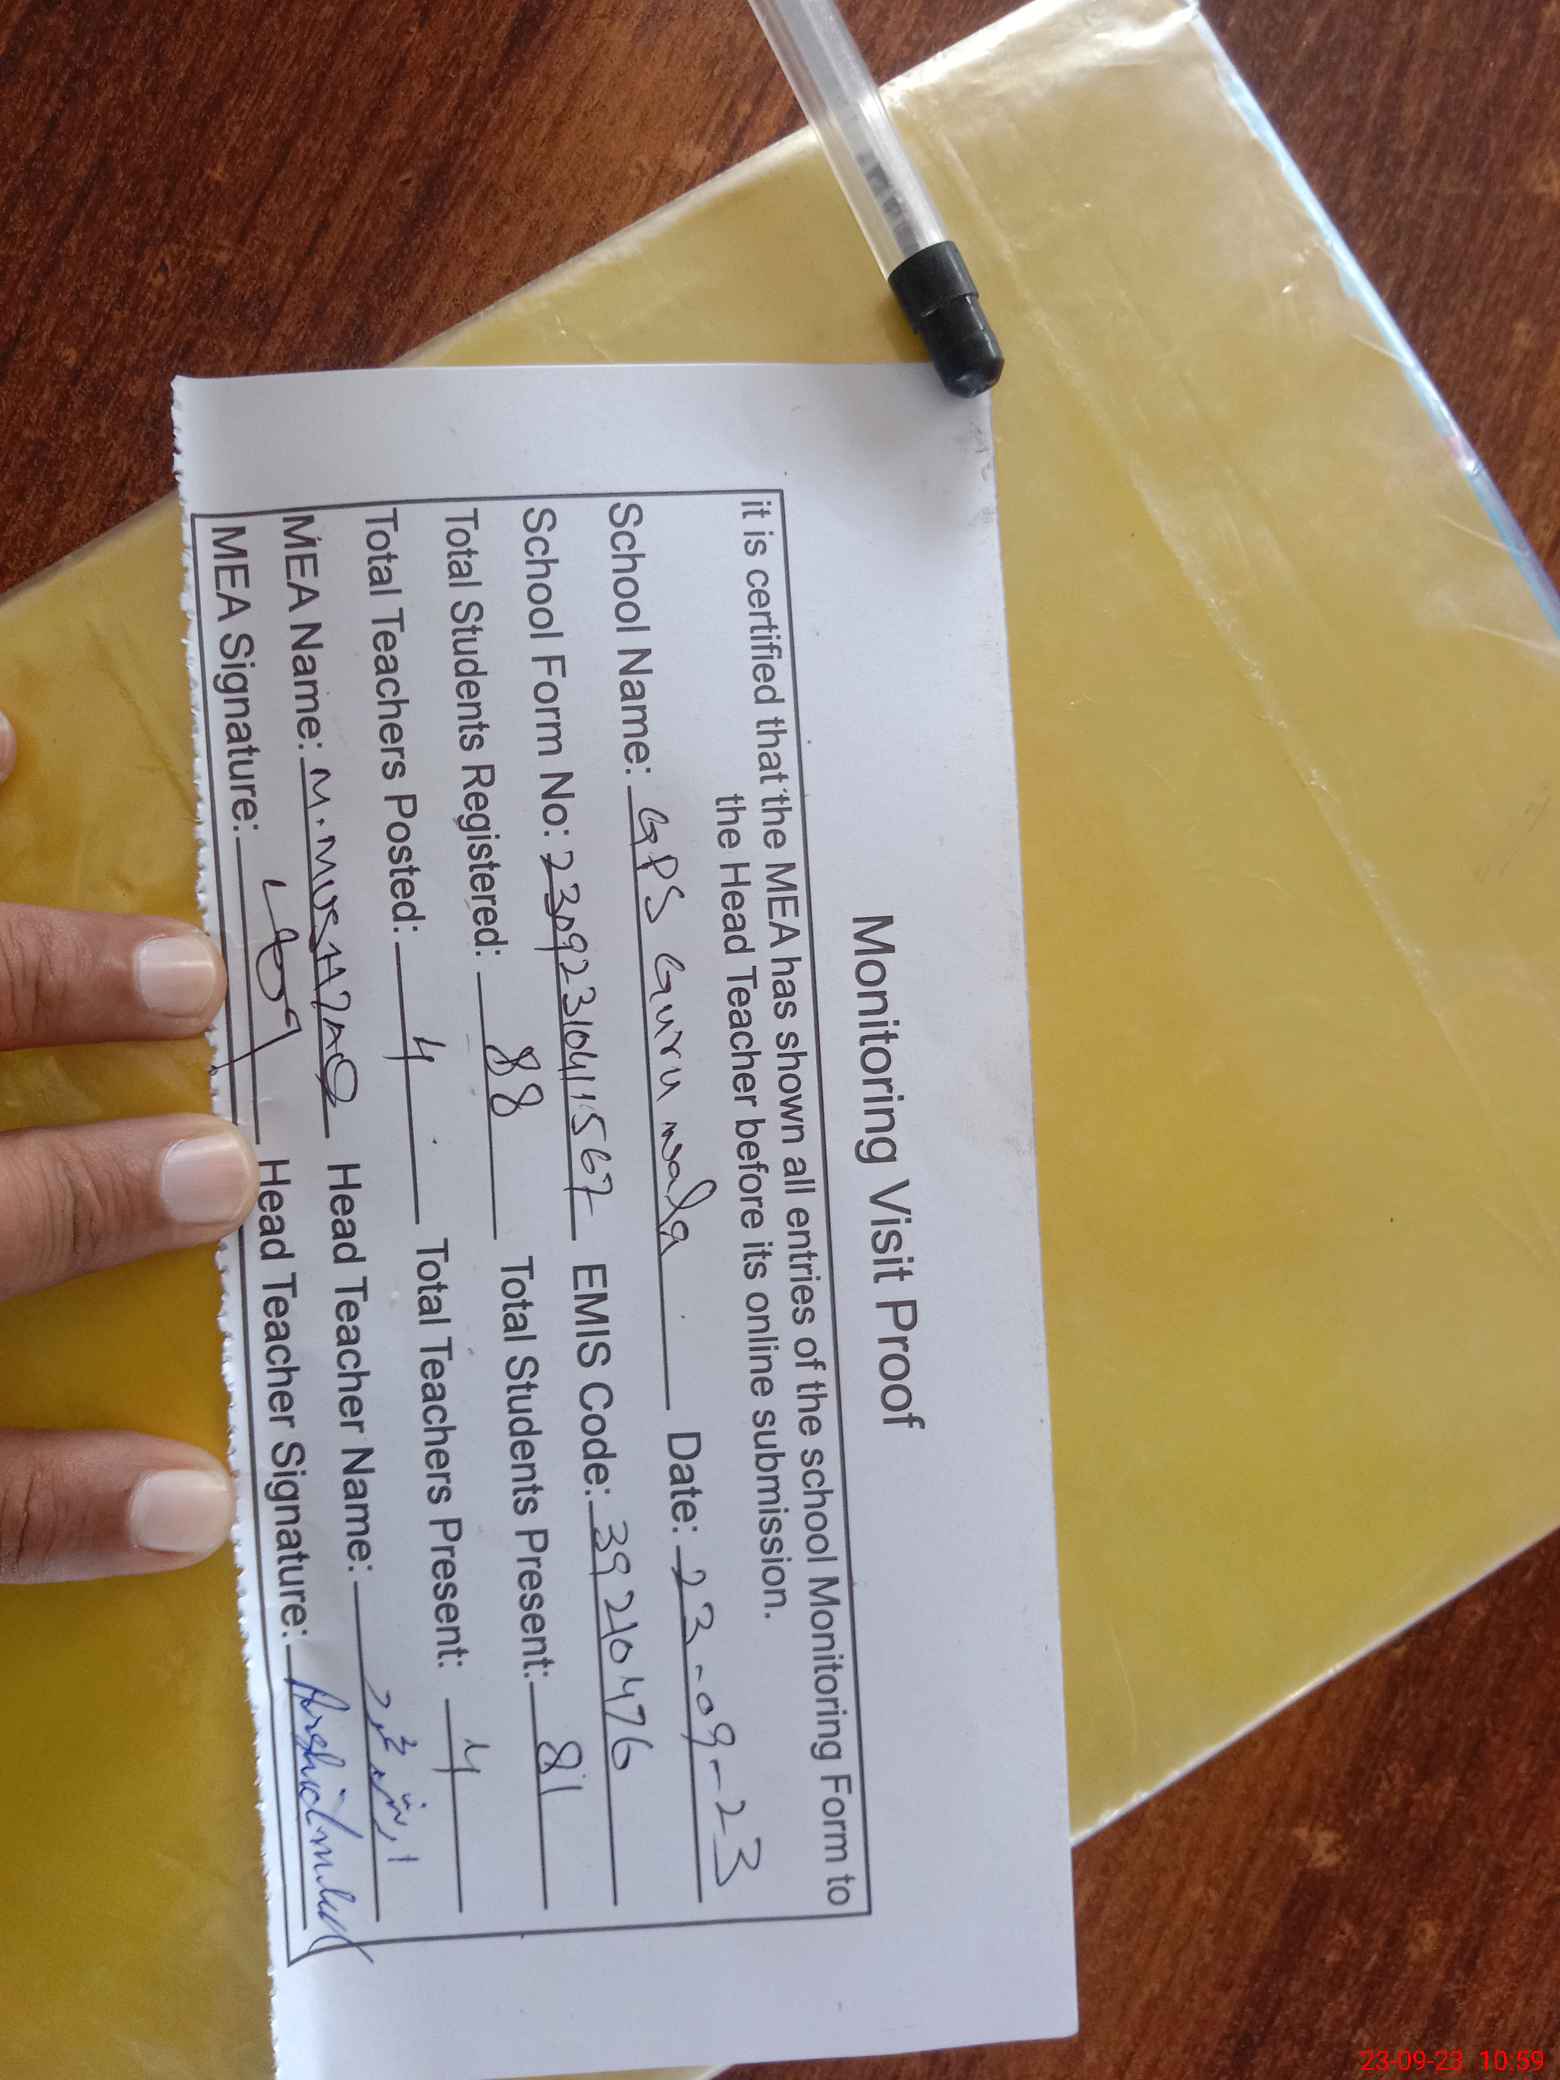 Monitoring Visit Proof
it is certified that the MEA has shown all entries of the school Monitoring Form to
the Head Teacher before its online submission.
School Name: GPS Guru wala Date: 23-09-23
School Form No: 23092310411567 EMIS Code: 39210476
Total Students Registered: 88 Total Students Present: 81
Total Teachers Posted: 4 Total Teachers Present: 4
MEA Name: M. MUSHTAQ Head Teacher Name:
MEA Signature: Head Teacher Signature:
23-09-23 10:59